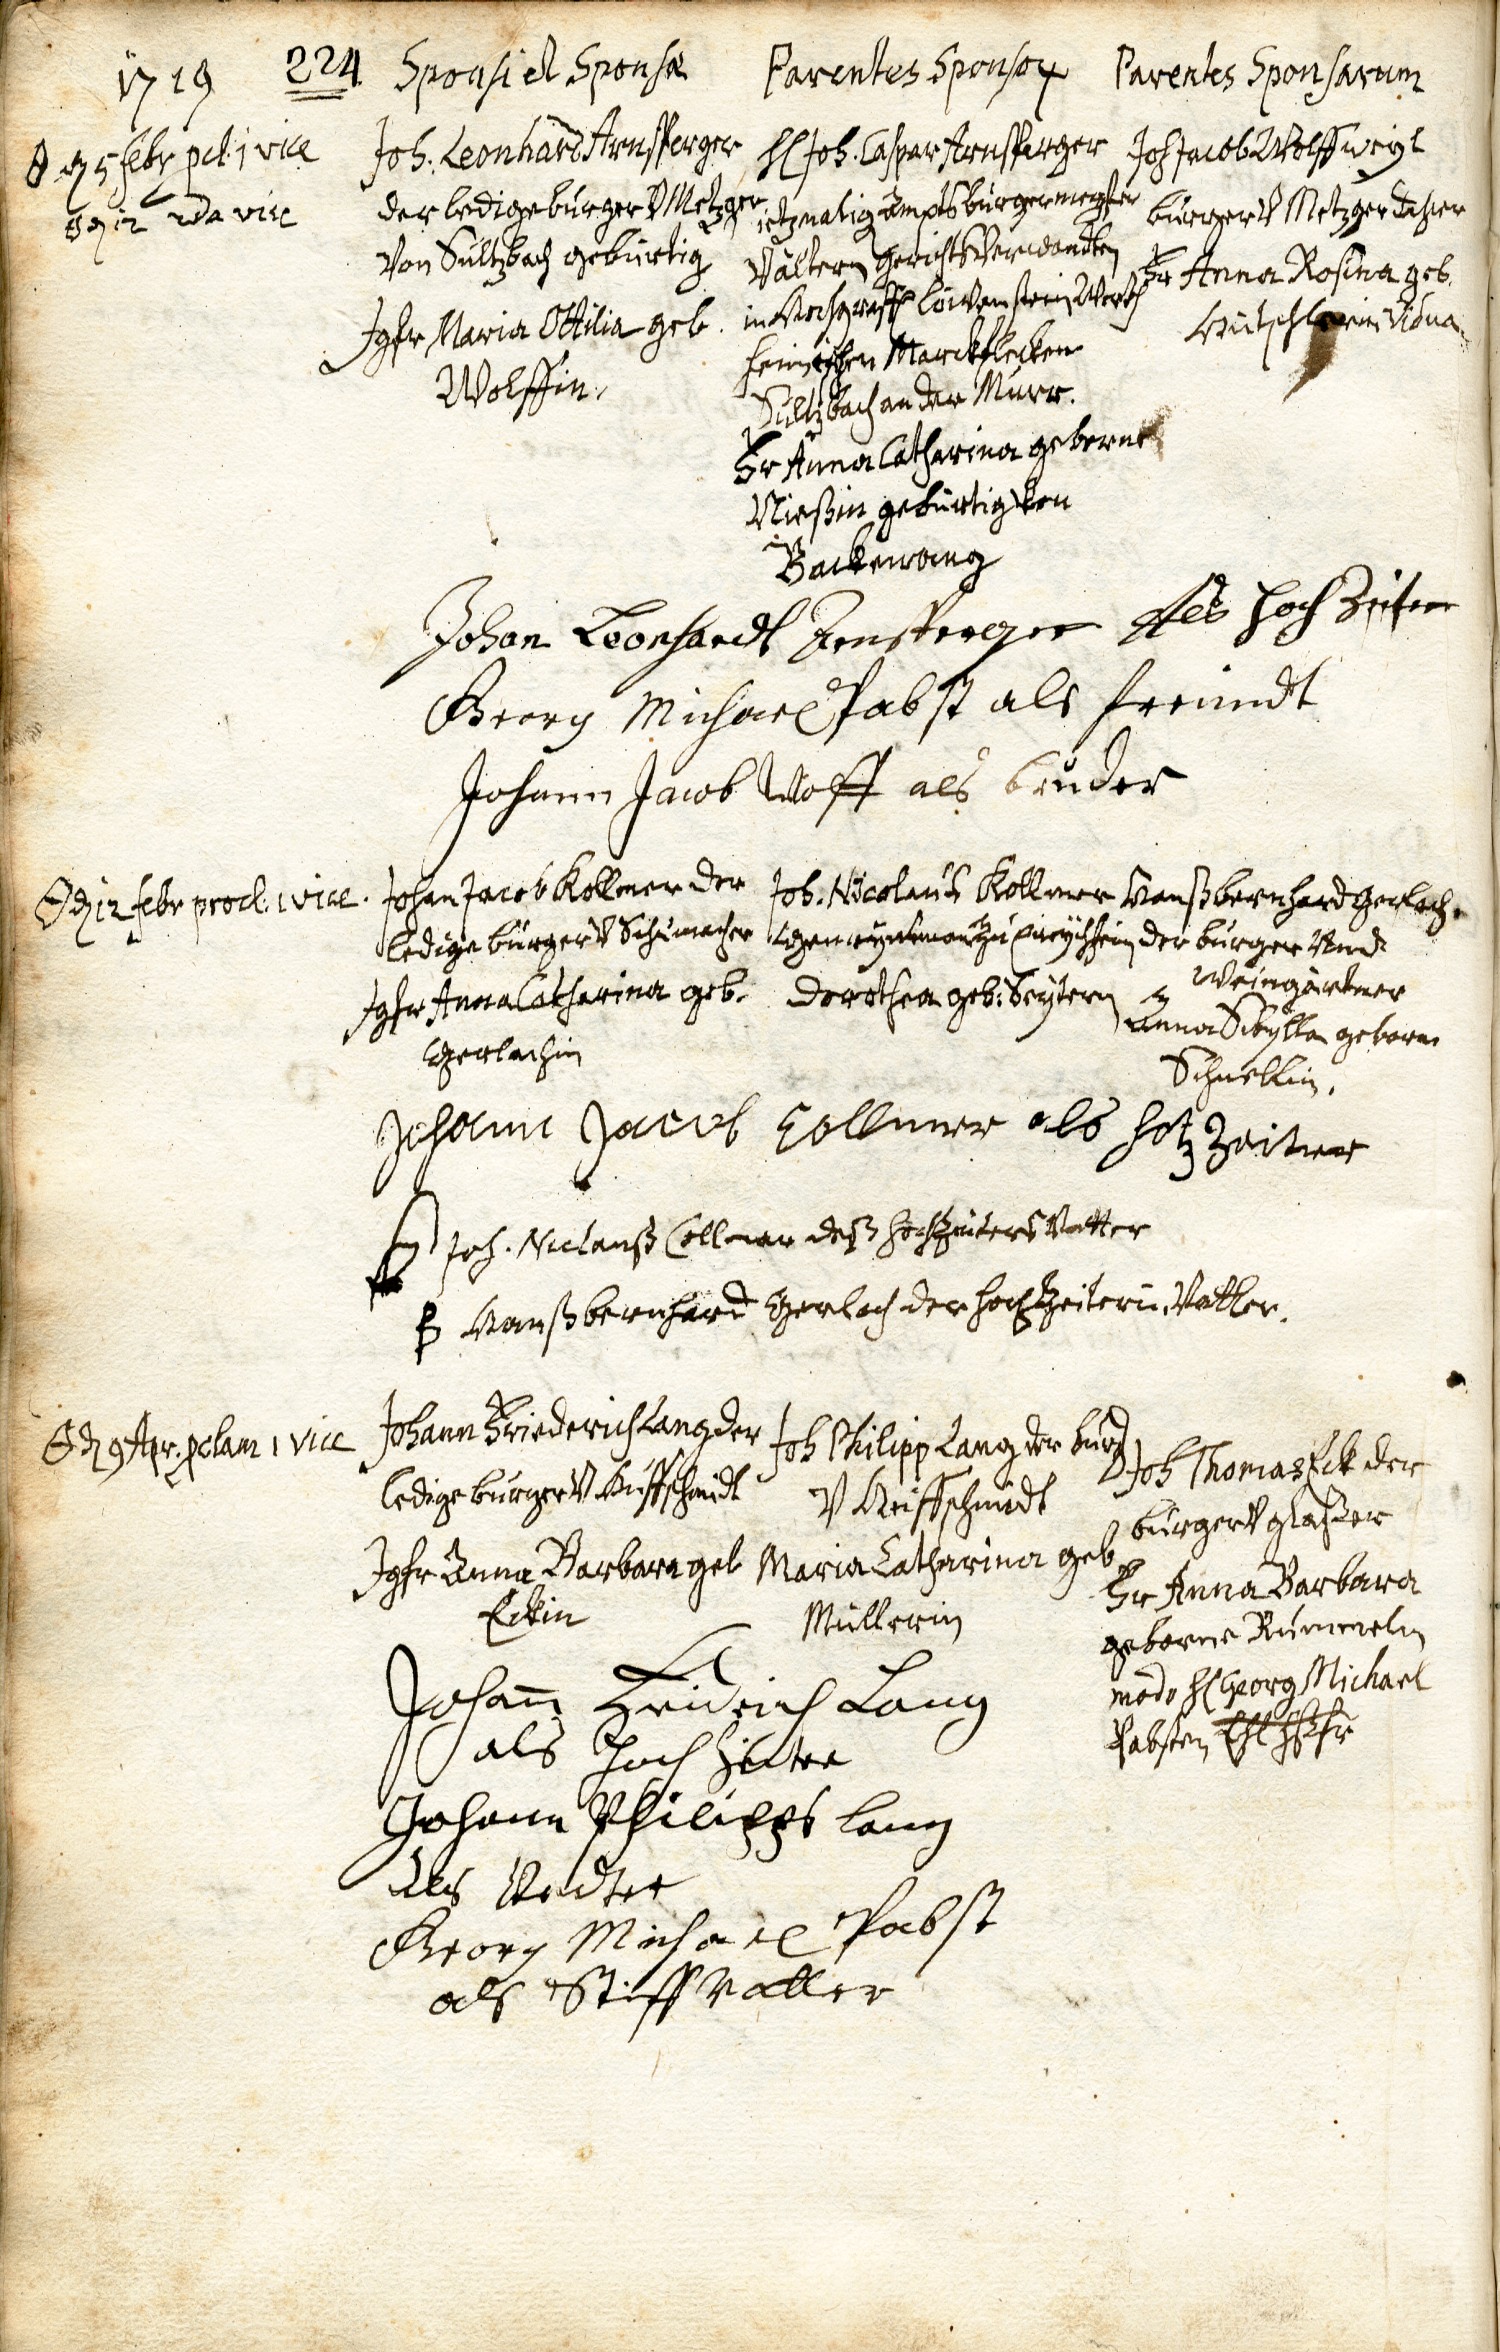 1719 224 Sponsi et Sponsæ Parentes Sponsor Parentes Sponsarum
5 febr pcl. 1 vice
12 2da vice
Joh. Leonhard Arnsperger
der ledige burger v Metzger
Von Sultzbach gebürtig
Jgfr Maria Ottilia geb.
Wolffin.
H Joh. Caspar Arnsperger
ietzmalig Ampts burgermeyster
Vältern gerichts Verwandten
in Hochgräffl Löwenstein Werth
heimischen Marckflecken
Sultzbach an der Murr.
Fr Anna Catharina geborne
gebürtig von
Backenang
Joh Jacob Wolff weyl
burger v Metzger dahier
Fr Anna Rosina geb.
vidua
Johan Leonhardt Arnsperger Als Hoch Zeiter
Georg Michael Pabst als freundt
Johann Jacob Wolff als bruder
12 febr procl. 1 vice.
Johan Jacob Kollmer der
ledige burger v Schumacher
Jgfr Anna Catharina geb.
Gerlachin
Joh. Nicolaus Kollmer
Dorothea geb. Seytern
Hanß bernhard Gerlach
der burger Und
Weingärtner
Anna Sibylla geborne
Schnellin.
Johann Jacob Collmer als hotz Zeitner
Joh. Niclauß Collmer deß hochzeiters Vatter
Hanß bernhard Gerlach der hochzeiterin Vatter.
9 Apr. pclam 1 vice
Johann Friederich Lang der
ledige burger v Huffschmidt
Jgfr Anna Barbara geb
Eckin
Joh Philipp Lang der burg
V Huffschmidt
Maria Catharina geb
Müllerin
Joh Thomas Eck der
burger v glaßer
Fr Anna Barbara
geborne Rummeln
modo H Georg Michael
Pabsten
Johann Fridrich Lang
als Hoch Zeiter
Johann Philipps Lang
als Vadter
Georg Michael Pabst
als Stiff Vatter